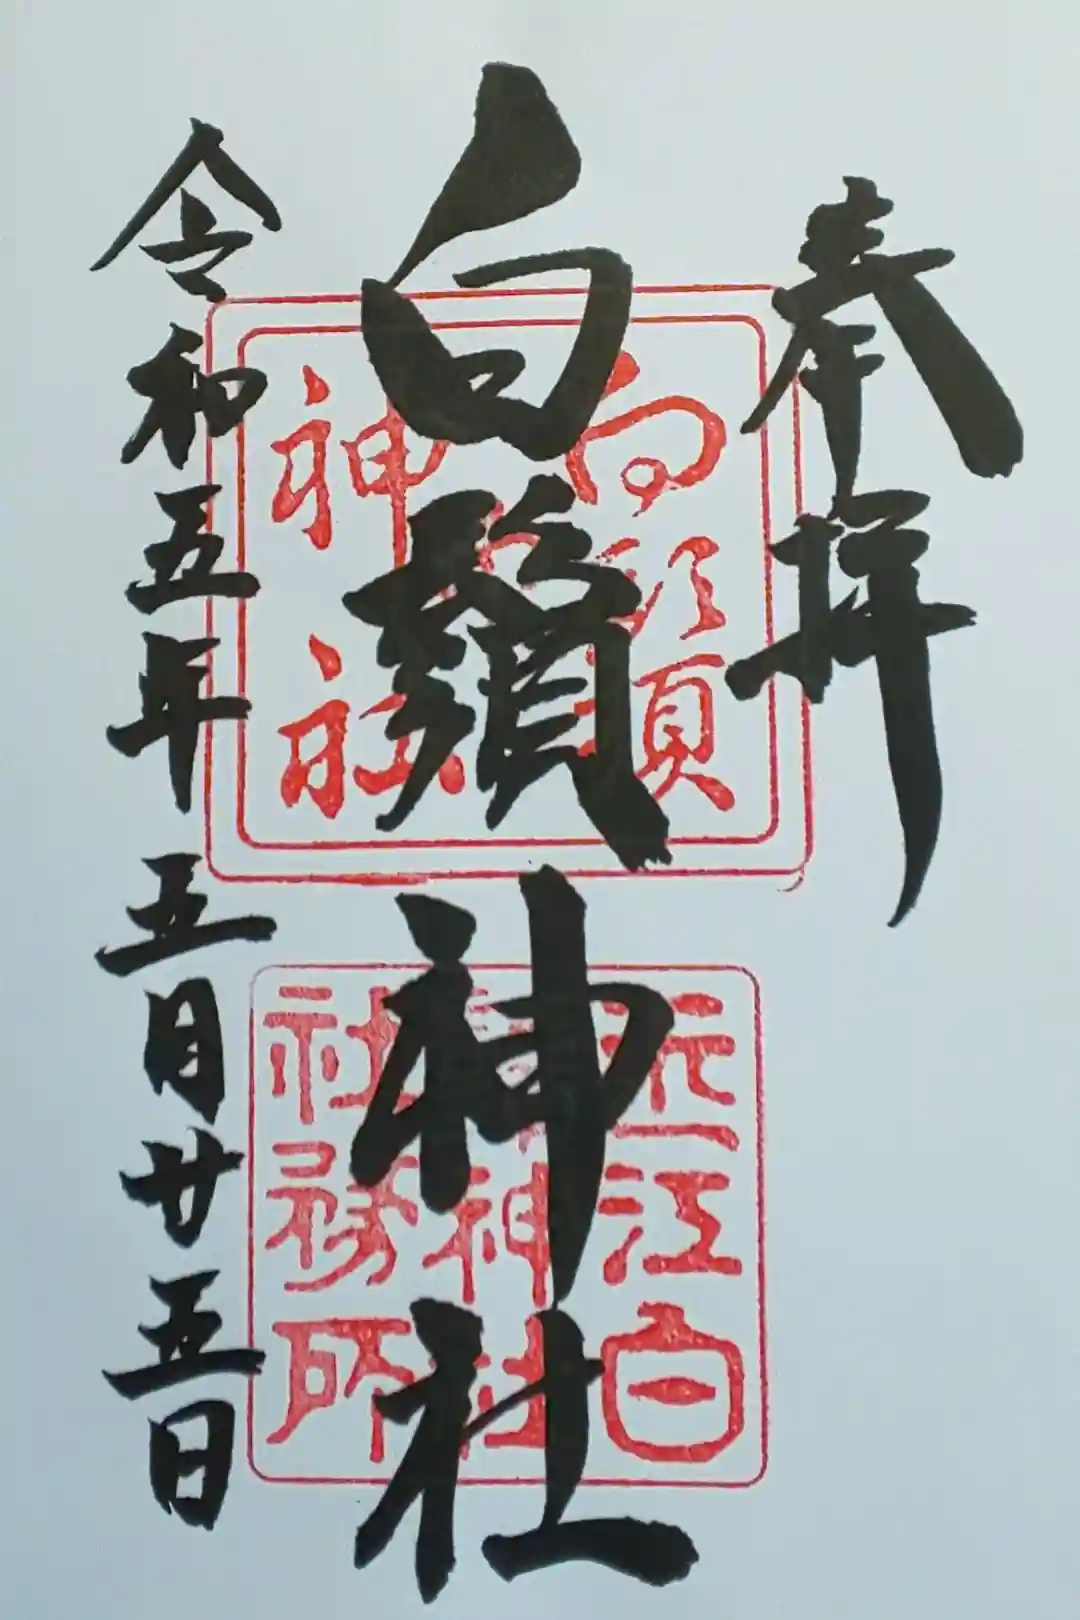 奉拝
白鬚神社
令和五年五月廿五日
神社
近江白
神社
社務所